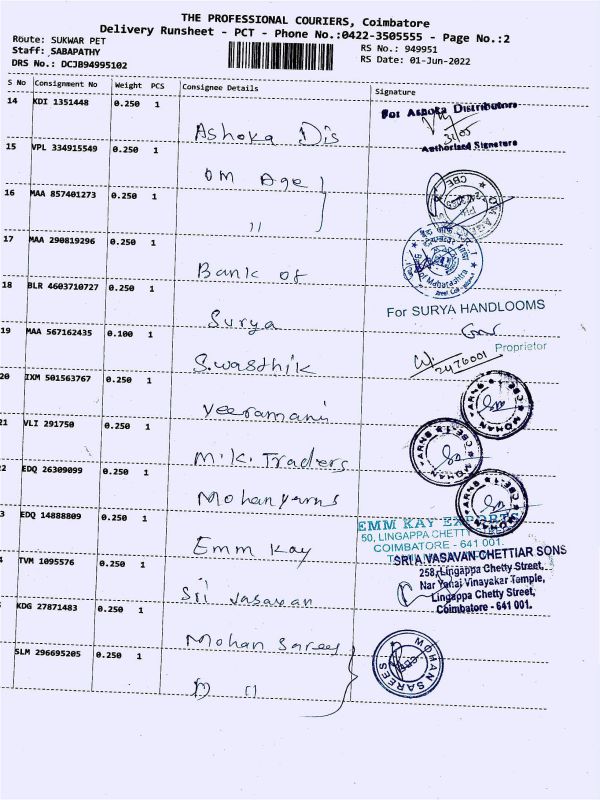 THE PROFESSIONAL COURIERS, Coimbatore
Delivery Runsheet - PCT - Phone No.:0422-3505555 - Page No.:2
Route: SUKWAR PET
Staff: SABAPATHY
DRS No.: DCJB94995102
RS No.: 949951
RS Date: 01-Jun-2022
S No Consignment No Weight PCS Consignee Details Signature
14 KDI 1351448 0.250 1 Ashoka Dis
For Ashoka Distributors
31/05
Authorised Signature
15 VPL 334915549 0.250 1 OM Age
16 MAA 857401273 0.250 1 "
CBE
17 MAA 290819296 0.250 1 Bank of
Maharashtra
18 BLR 4603710727 0.250 1 Surya
For SURYA HANDLOOMS
Proprietor
19 MAA 567162435 0.100 1 S.wasthik
2476001
20 IXM 501563767 0.250 1 Veeramani
MOHAN YARNS
21 VLI 291750 0.250 1 M.K. Traders
MOHAN YARNS
2 EDQ 26309099 0.250 1 Mohan yarns
MOHAN YARNS
3 EDQ 14888809 0.250 1 Emm Kay
EMM KAY EXPORTS
50, LINGAPPA CHETTY
COIMBATORE - 641 001.
4 TVM 1095576 0.250 1 Sri Vasavan
SRI A VASAVAN CHETTIAR SONS
258, Lingappa Chetty Street,
Vinayakar Temple,
Lingappa Chetty Street,
Coimbatore - 641 001.
KDG 27871483 0.250 1 Mohan Sarees
SLM 296695205 0.250 1 "
MOHAN SAREES